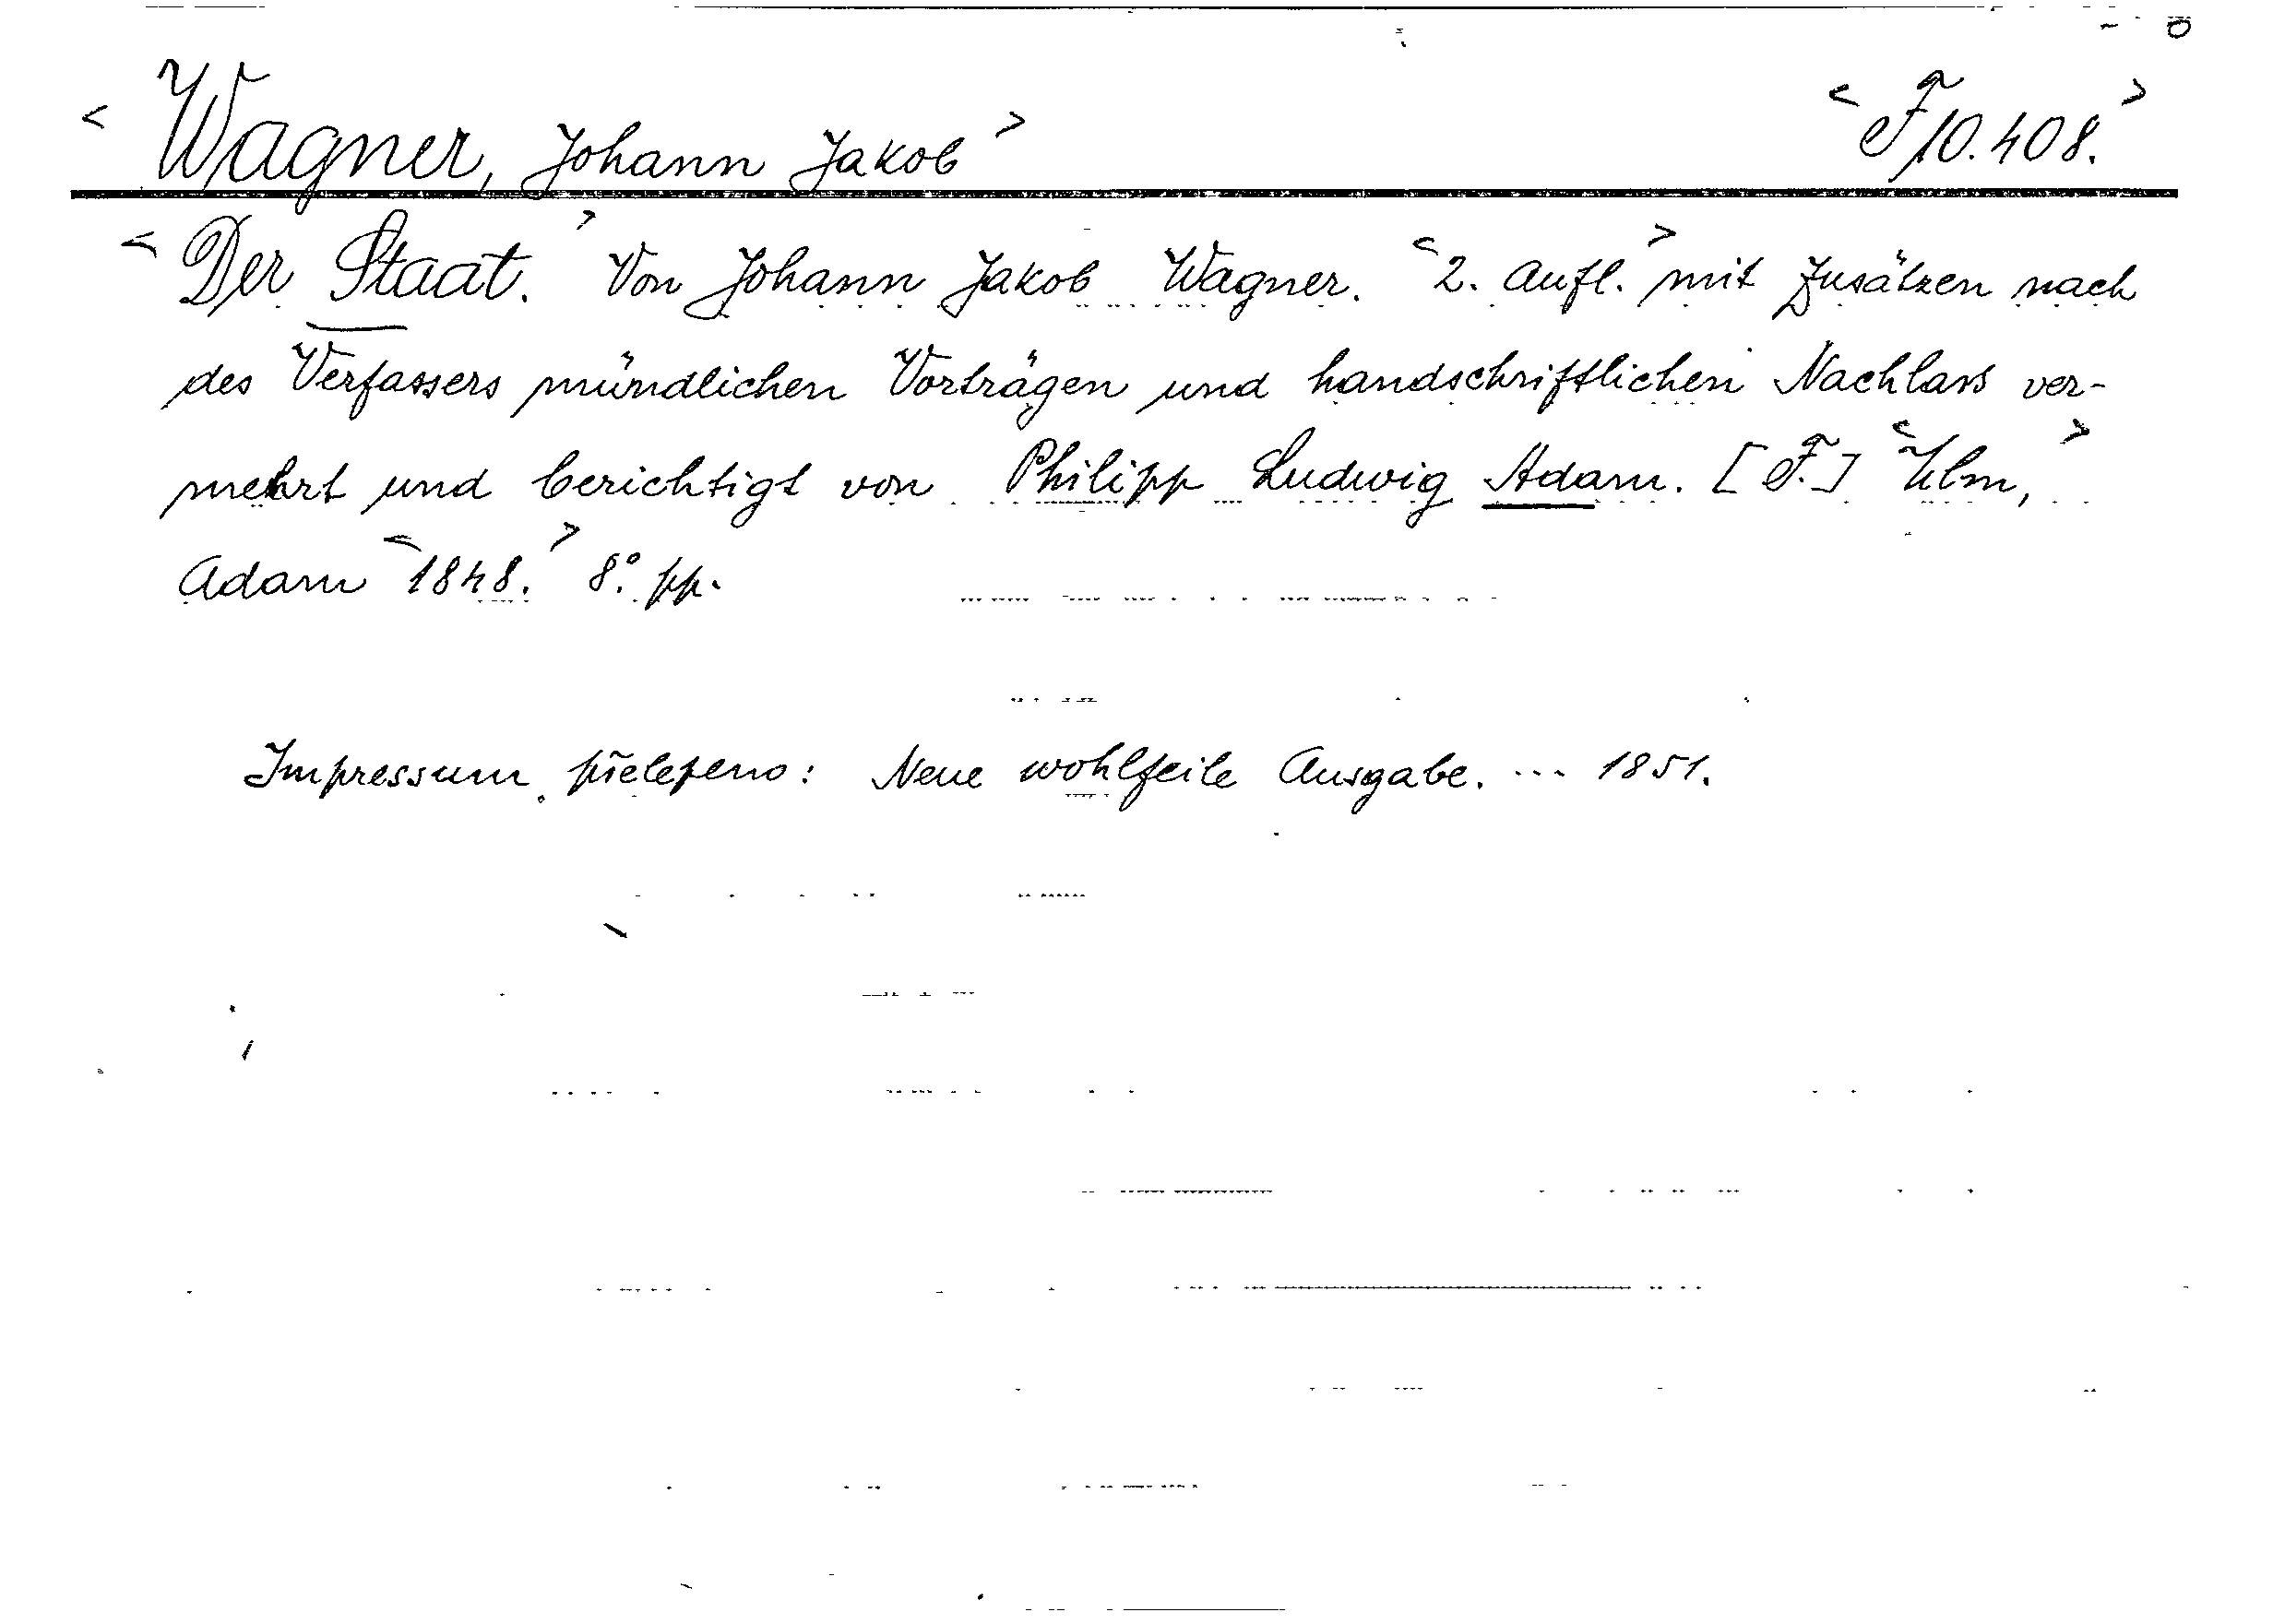 < Wagner, Johann Jakob > < F 10.408. >
< Der Staat. > Von Johann Jakob Wagner. < 2. Aufl. > mit Zusätzen nach
des Verfassers mündlichen Vorträgen und handschriftlichen Nachlass ver-
mehrt und berichtigt von Philipp Ludwig Adam. [F.] < Ulm, >
Adam < 1848. > 8°. pp.
Impressum přelepeno: Neue wohlfeile Ausgabe. ... 1851.